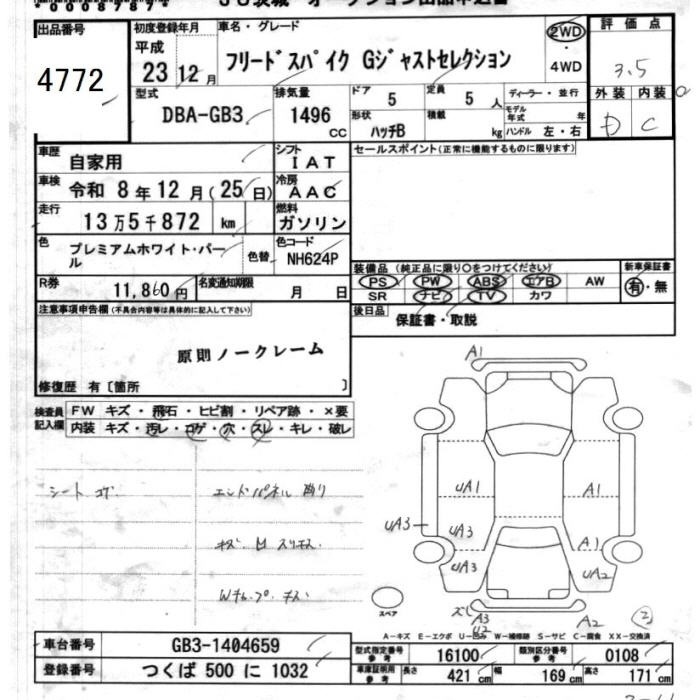 出品番号 4772
初度登録年月 平成 23年12月
車名・グレード フリードスパイク Gジャストセレクション
2WD・4WD
評価点 3.5
外装 内装
D C
型式 DBA-GB3
排気量 1496 CC
ドア 5 定員 5人
ディーラー・並行
形状 ハッチB 積載 kg
モデル年式 年
ハンドル 左・右
車歴 自家用
シフト IAT
セールスポイント(正常に機能するものに限ります)
車検 令和 8年12月(25日)
冷房 AAC
走行 13万5千872 km
燃料 ガソリン
色 プレミアムホワイト・パール
色替
色コード NH624P
装備品(純正品に限り○をつけてください)
新車保証書
PS PW ABS エアB AW
有・無
SR ナビ TV カワ
R券 11,860円
名変通知期限 月 日
後日品 保証書・取説
注意事項申告欄(不具合内容等は具体的に記入して下さい)
原則ノークレーム
修復歴 有〔箇所 〕
検査員記入欄
FW キズ・飛石・ヒビ割・リペア跡・×要
内装 キズ・汚レ・コゲ・穴・スレ・キレ・破レ
シート コゲ
エンドパネル 凹り
A1
UA1 A1
UA3 UA3 A1
UA3 UA2
スペア
A3 A2
U2
A-キズ E-エクボ U-凹み W-補修跡 S-サビ C-腐食 XX-交換済
車台番号 GB3-1404659
型式指定番号 参考 16100
類別区分番号 参考 0108
登録番号 つくば 500 に 1032
車庫証明用 参考 長さ 421 cm 幅 169 cm 高さ 171 cm